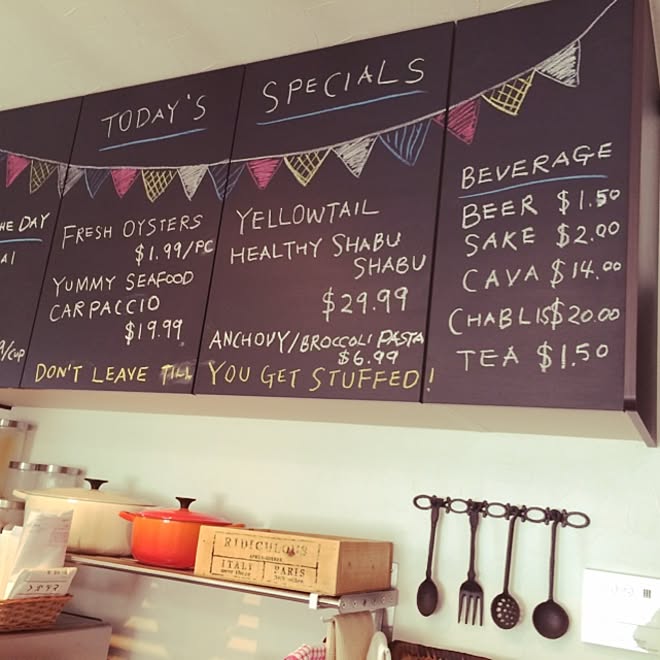 TODAY'S SPECIALS
HE DAY
AI
/CUP
FRESH OYSTERS
$1.99/PC
YUMMY SEAFOOD
CARPACCIO
$19.99
YELLOWTAIL
HEALTHY SHABU
SHABU
$29.99
ANCHOVY/BROCCOLI PASTA
$6.99
DON'T LEAVE TILL YOU GET STUFFED!
BEVERAGE
BEER $1.50
SAKE $2.00
CAVA $14.00
CHABLIS $20.00
TEA $1.50
RIDICULOUS
ITALY PARIS